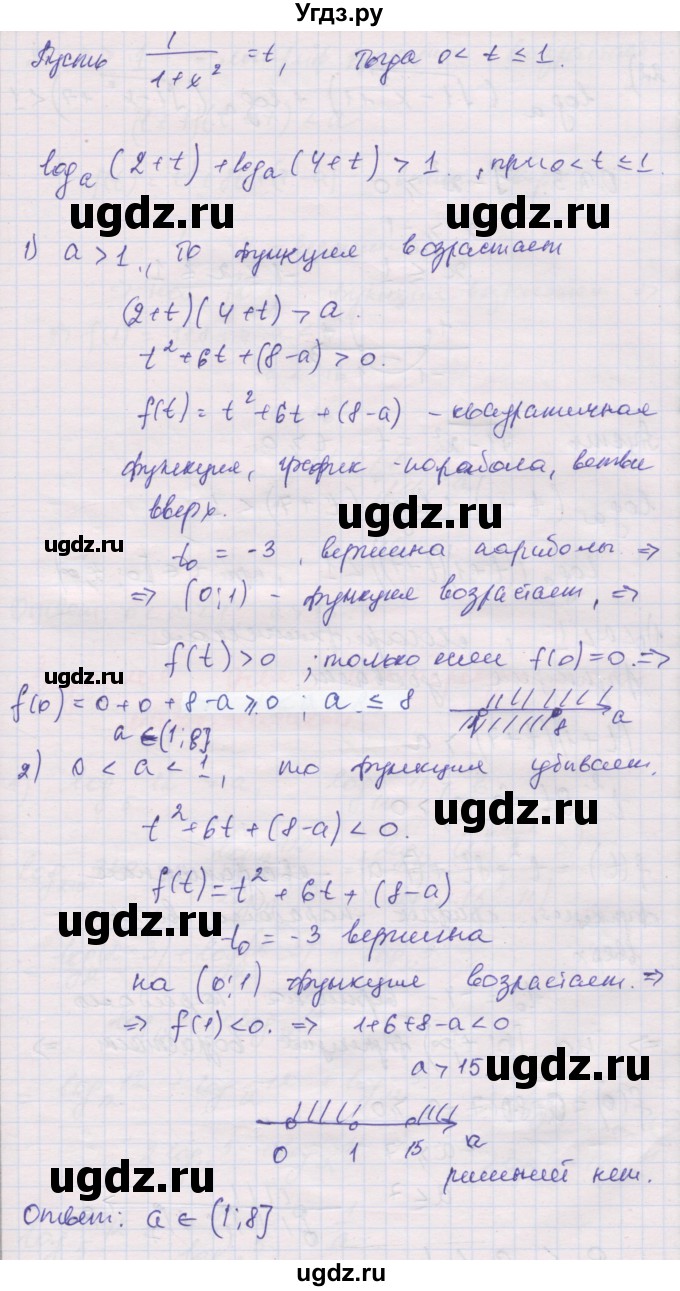 Угдз.ру
Пусть 1/(1+x²) = t, тогда 0 < t ≤ 1.
logₐ(2+t) + logₐ(4+t) > 1, при 0 < t ≤ 1.
ugdz.ru ugdz.ru
1) a > 1, то функция возрастает
(2+t)(4+t) > a.
t² + 6t + (8-a) > 0.
f(t) = t² + 6t + (8-a) - квадратичная
функция, график - парабола, ветви
вверх.
ugdz.ru
ugdz.ru
t₀ = -3, вершина параболы ⇒
⇒ (0;1) - функция возрастает, ⇒
ugdz.ru
f(t) > 0, только если f(0) = 0. ⇒
f(0) = 0 + 0 + 8 - a ≥ 0; a ≤ 8
1 8 a
a ∈ (1;8]
2) 0 < a < 1, то функция убывает.
ugdz.ru
t² + 6t + (8-a) < 0.
f(t) = t² + 6t + (8-a)
ugdz.ru
t₀ = -3 вершина
на (0;1) функция возрастает. ⇒
⇒ f(1) < 0. ⇒ 1+6+8-a < 0
a > 15
ugdz.ru
0 1 15 a
ugdz.ru
решений нет.
Ответ: a ∈ (1;8]
ugdz.ru